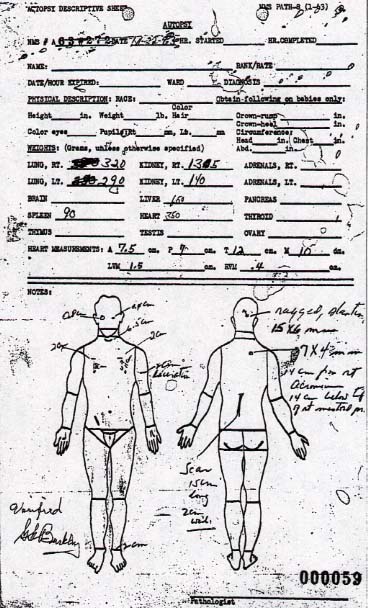 AUTOPSY DESCRIPTIVE SHEET NMS PATH-8 (1-63)
AUTOPSY
NMS # A63#272 DATE HR. STARTED HR.COMPLETED
NAME: RANK/RATE:
DATE/HOUR EXPIRED: WARD DIAGNOSIS
PHYSICAL DESCRIPTION: RACE: Obtain following on babies only:
Color
Height in. Weight lb. Hair Crown-rump in.
Crown-heel in.
Color eyes Pupils:Rt mm, Lt. mm Circumference:
Head in. Chest in.
WEIGHTS: (Grams, unless otherwise specified) Abd. in.
LUNG, RT. 320 KIDNEY, RT. ADRENALS, RT.
LUNG, LT. 290 KIDNEY, LT. 140 ADRENALS, LT.
BRAIN LIVER PANCREAS
SPLEEN 90 HEART 350 THYROID
THYMUS TESTIS OVARY
HEART MEASUREMENTS: A 7.5 cm. P 7 cm. T 12 cm. M 10 cm.
LVM 1.5 cm. RVM .4 cm.
NOTES:
ragged, slanting
15 X 6 mm
2cm
7 X 4 mm
14 cm from rt
acromion
14 cm below tip
of rt mastoid pr.
Scar
15 cm
long
2cm
wide
Verified
GG Burkley
2cm
000059
Pathologist